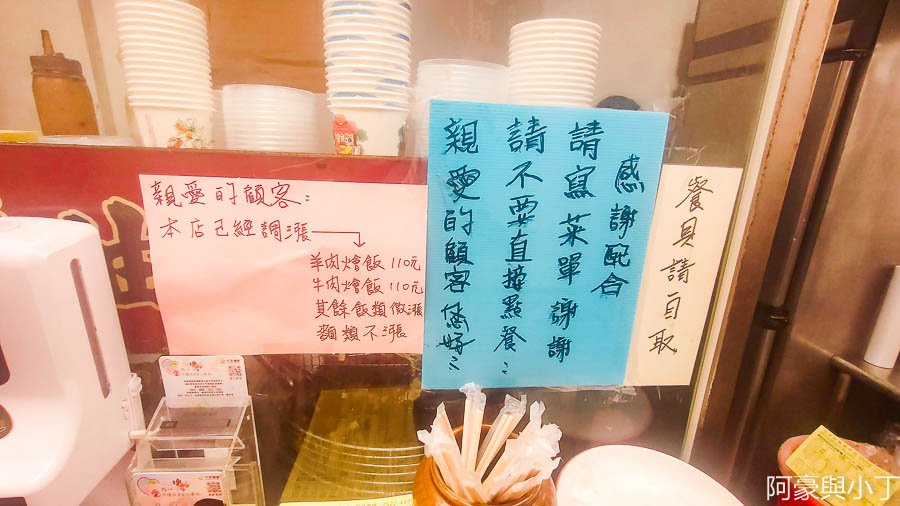 親愛的顧客：
本店已經調漲→
羊肉燴飯 110元
牛肉燴飯 110元
其餘飯類微漲
麵類不漲
親愛的顧客您好：
請不要直接點餐：
請寫菜單謝謝
感謝配合
餐具請自取
阿豪與小丁